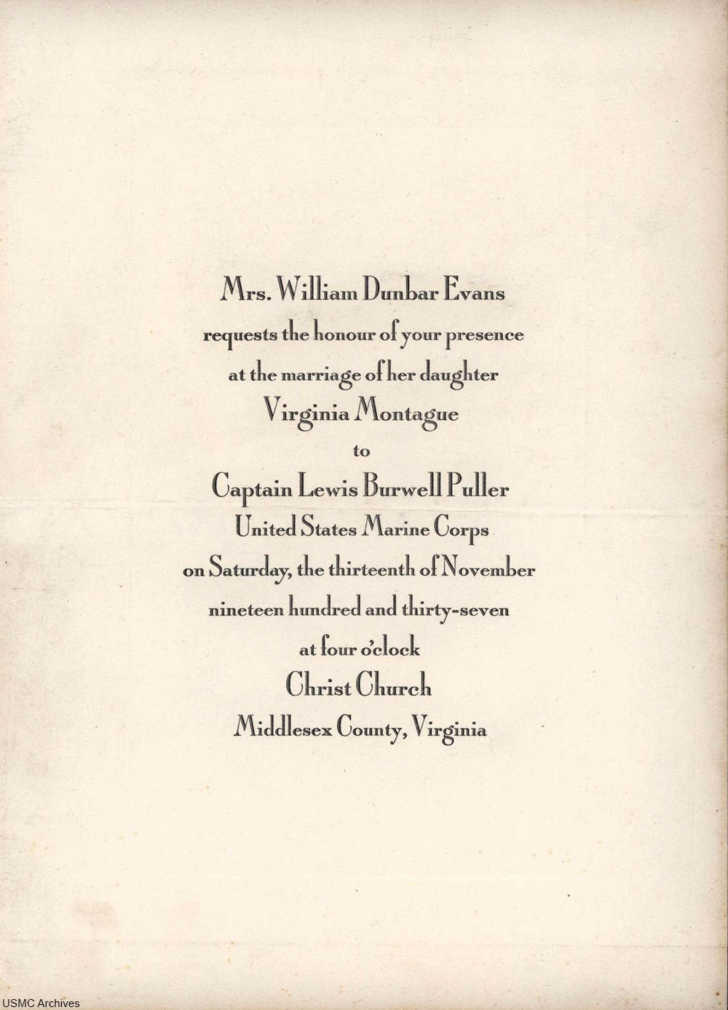 Mrs. William Dunbar Evans
requests the honour of your presence
at the marriage of her daughter
Virginia Montague
to
Captain Lewis Burwell Puller
United States Marine Corps
on Saturday, the thirteenth of November
nineteen hundred and thirty-seven
at four o'clock
Christ Church
Middlesex County, Virginia
USMC Archives